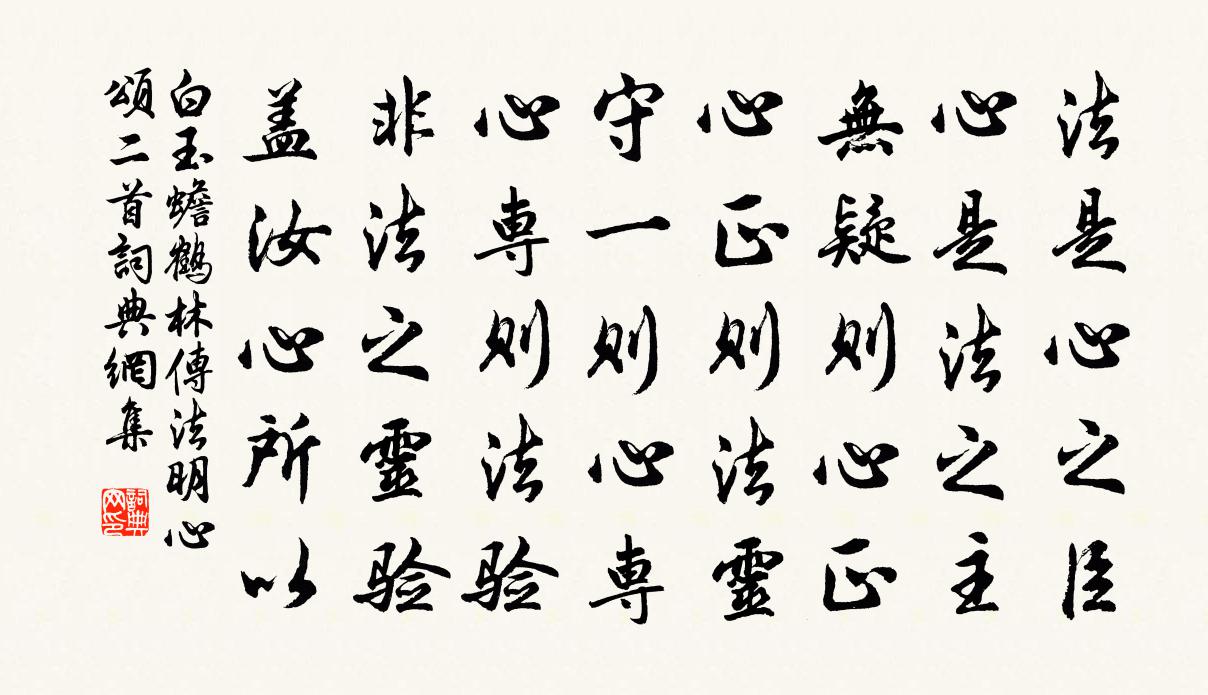 法是心之臣
心是法之主
無疑則心正
心正則法靈
守一則心専
心専則法验
非法之靈验
盖汝心所以
白玉蟾鶴林傳法明心
頌二首詞典網集
詞典网印